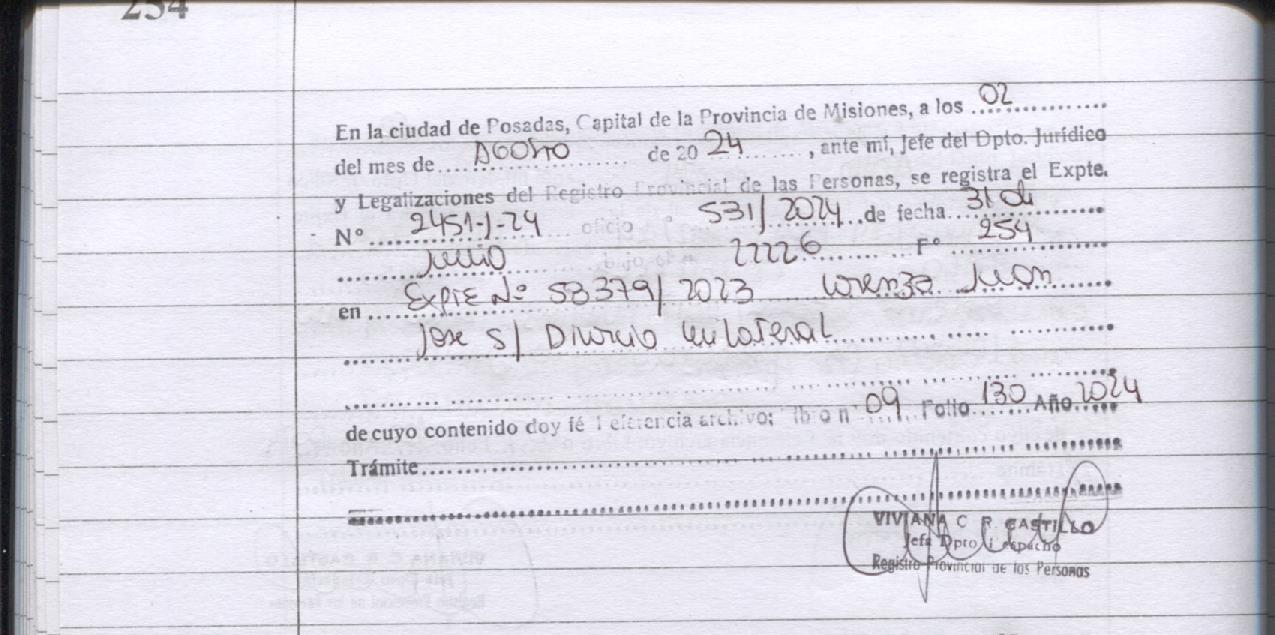 254
En la ciudad de Posadas, Capital de la Provincia de Misiones, a los 02
del mes de Agosto de 2024, ante mí, Jefe del Dpto. Jurídico
y Legalizaciones del Registro Provincial de las Personas, se registra el Expte.
Nº 2451-J-24 oficio 531/2024 de fecha 31 de
Julio 22226 Fº 254
en Expte Nº 53379/2023 Lorenzo Juan
Jose s/ Divorcio Unilateral
de cuyo contenido doy fé referencia archivo; libro nº 09 Folio 130 Año 2024
Trámite
VIVIANA C R. CASTILLO
Jefa Dpto Despacho
Registro Provincial de las Personas